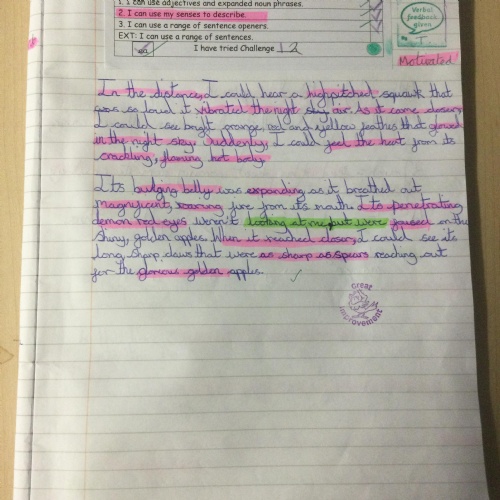 1. I can use adjectives and expanded noun phrases.
2. I can use my senses to describe.
3. I can use a range of sentence openers.
EXT: I can use a range of sentences.
I have tried Challenge 1 2
Verbal feedback given
Motivated
In the distance, I could hear a highpitched squawk that
was so loud it vibrated the night sky air. As it came closer,
I could see bright orange, red and yellow feathes that glowed
in the night sky. Suddenly, I could feel the heat from its
crackling, flaming hot body.
Its bulging belly was expanding as it breathed out
magnificent, roaring fire from its mouth. Its penetrating
demon red eyes weren't looking at me, but were focused on the
shiny, golden apples. When it reached closer, I could see its
long, sharp, claws that were as sharp as spears reaching out
for the glorious golden apples.
Great Improvement